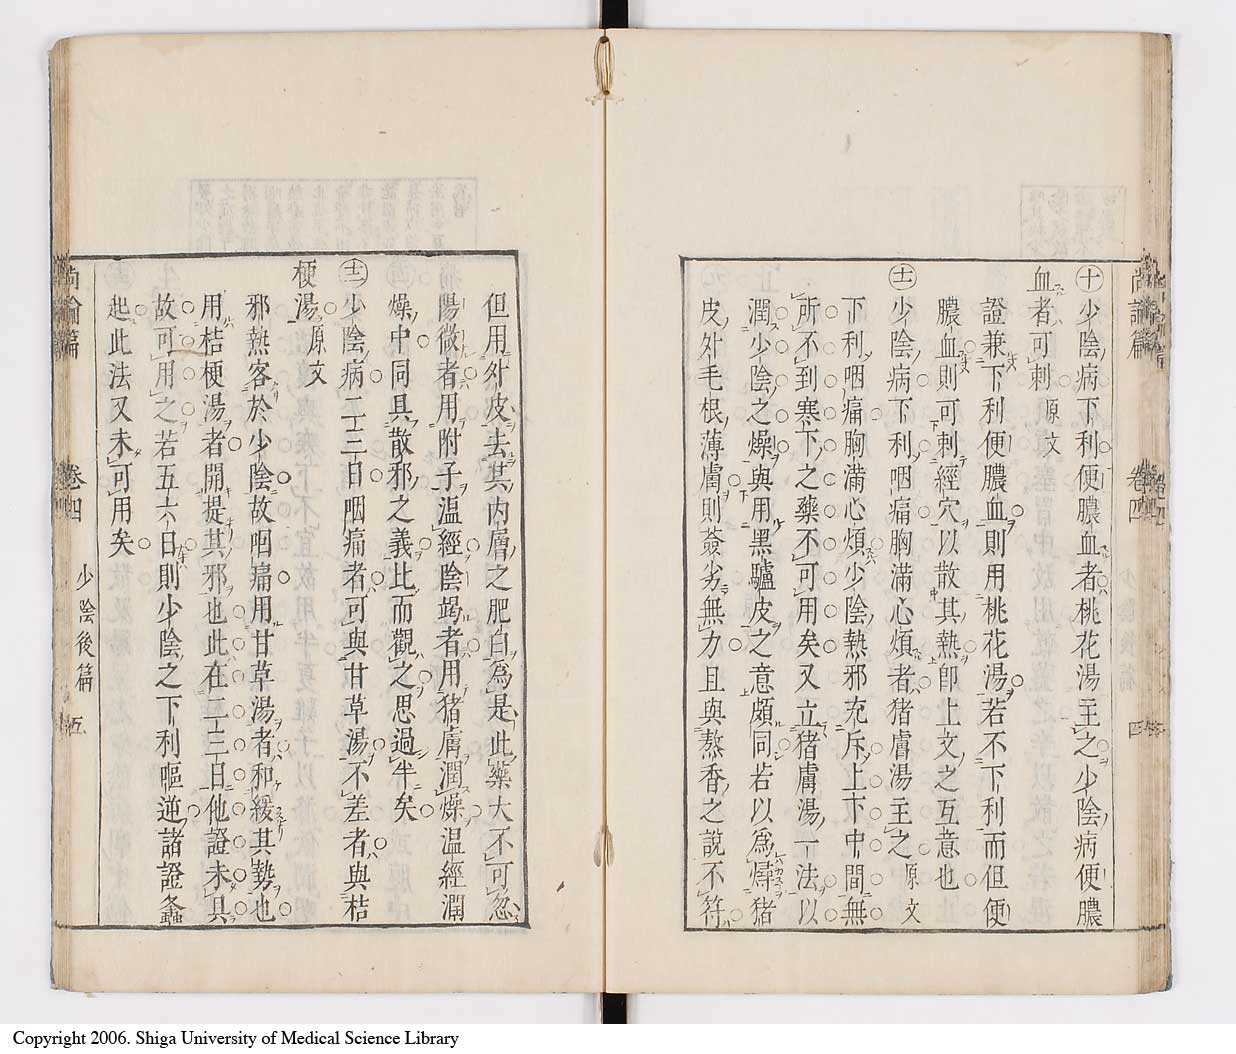 尚論篇 卷四 四
㊉少陰病下利便膿血者桃花湯主之少陰病便膿
血者可刺 原文
證兼下利便膿血則用桃花湯若不下利而但便
膿血則可刺經穴以散其熱卽上文之互意也
㊉一少陰病下利咽痛胸滿心煩者猪膚湯主之 原文
下利咽痛胸滿心煩少陰熱邪充斥上下中間無
所不到寒下之藥不可用矣又立猪膚湯一法以
潤少陰之燥與用黑驢皮之意頗同若以爲燖猪
皮外毛根薄膚則簽劣無力且與熬香之說不符
但用外皮去其內層之肥白爲是此藥大不可忽
陽微者用附子溫經陰竭者用猪膚潤燥溫經潤
燥中同具散邪之義比而觀之思過半矣
㊉二少陰病二三日咽痛者可與甘草湯不差者與桔
梗湯 原文
邪熱客於少陰故咽痛用甘草湯者和緩其勢也
用桔梗湯者開提其邪也此在二三日他證未具
故可用之若五六日則少陰之下利嘔逆諸證蠭
起此法又未可用矣
尚論篇 卷四 少陰後篇 五
Copyright 2006. Shiga University of Medical Science Library